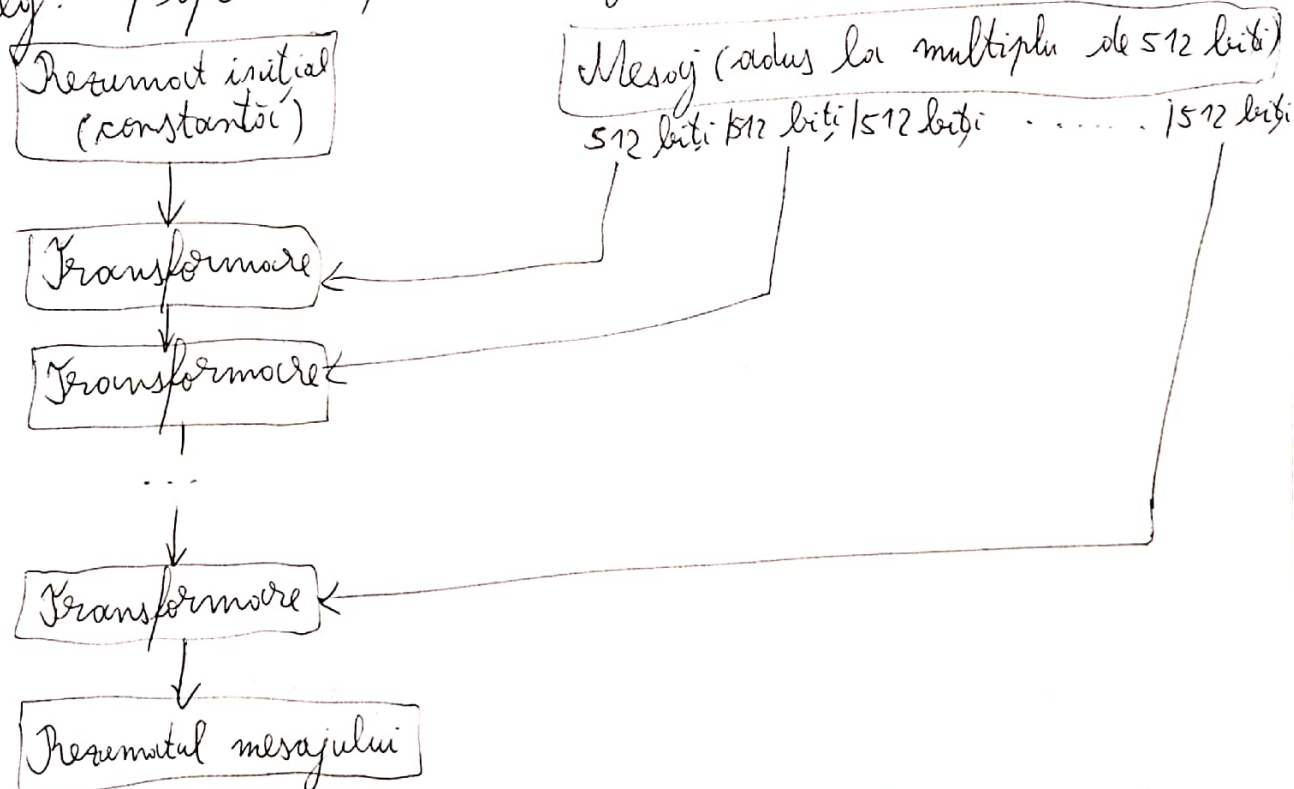 Rezumat inițial
(constantă)
Mesaj (adus la multiplu de 512 biți)
512 biți |512 biți |512 biți ....... |512 biți
Transformare
Transformare
...
Transformare
Rezumatul mesajului